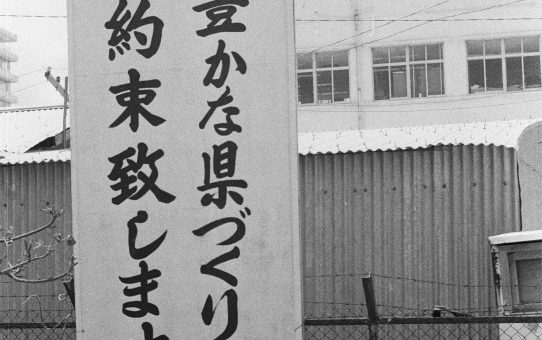 豊かな県づくり
約束致しま